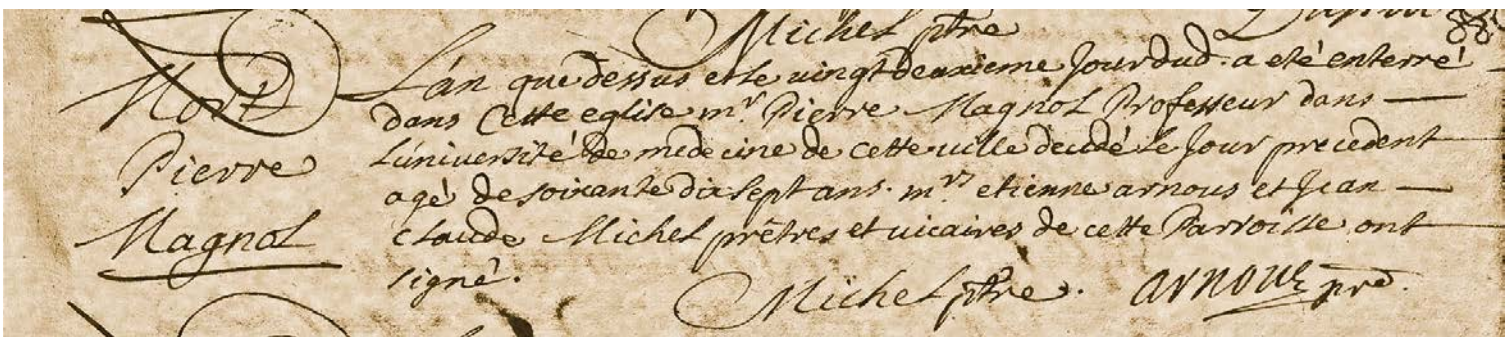 Michel ptre
Mort
Pierre
Magnol
L'án que dessus et le vingt deuxieme Jour dud. a eté enterré
dans Cette eglise mr. Pierre Magnol Professeur dans
L'université de medecine de cette ville decedé Le Jour precedent
agé de soixante dix sept ans. mrs etienne arnous et Jean
claude Michel prêtres et vicaires de cette Parroisse ont
signé.
Michel ptre. arnous pre.